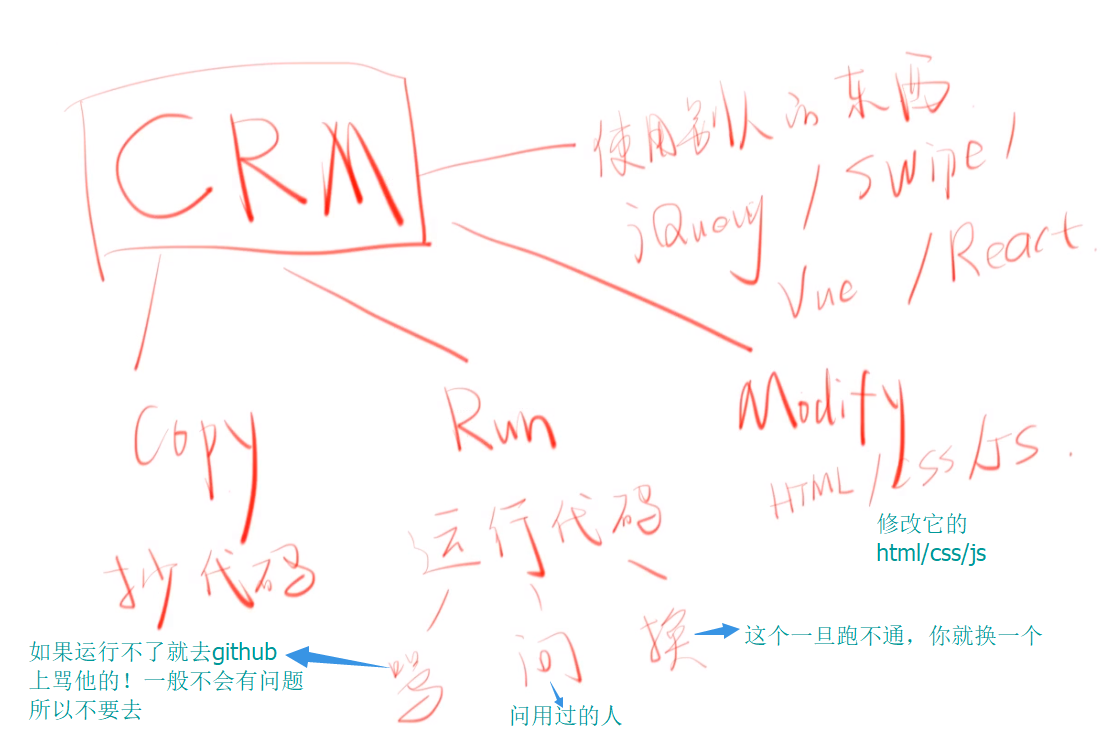 CRM
使用别人的东西
jQuery / swipe /
Vue / React.
Copy
Run
Modify
HTML/CSS/JS.
修改它的
html/css/js
抄代码
运行代码
骂
问
换
如果运行不了就去github
上骂他的！一般不会有问题
所以不要去
问用过的人
这个一旦跑不通，你就换一个